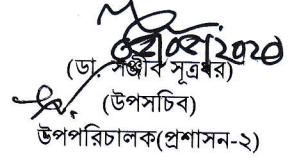 (ডা. সঞ্জীব সূত্রধর)
(উপসচিব)
উপপরিচালক(প্রশাসন-২)